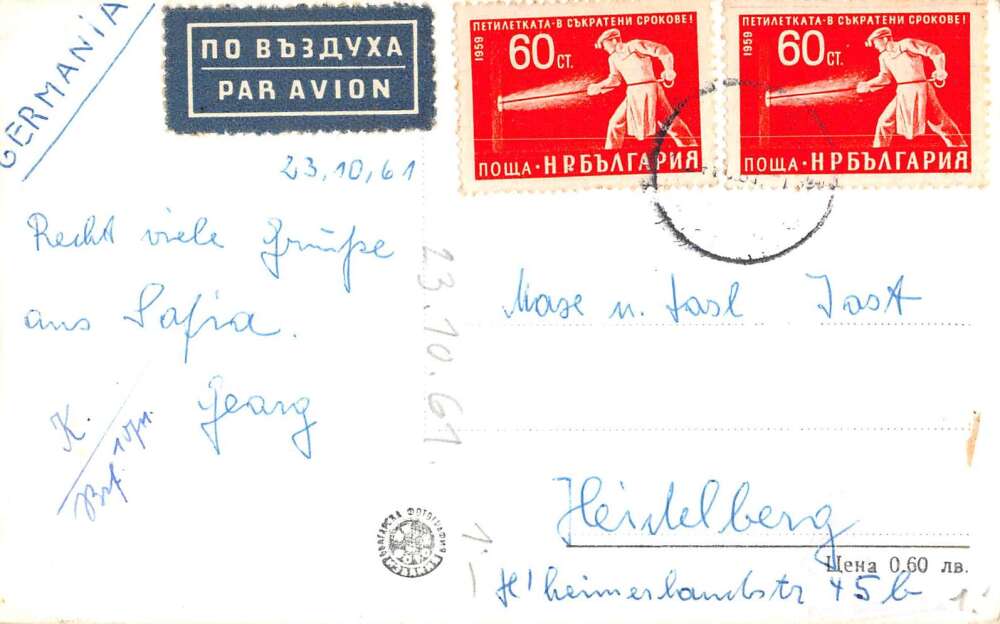 GERMANIA
ПО ВЪЗДУХА
PAR AVION
ПЕТИЛЕТКАТА-В СЪКРАТЕНИ СРОКОВЕ!
1959
60 СТ.
ПОЩА · НР БЪЛГАРИЯ
ПЕТИЛЕТКАТА-В СЪКРАТЕНИ СРОКОВЕ!
1959
60 СТ.
ПОЩА · НР БЪЛГАРИЯ
23.10.61
Recht viele Grüße
aus Sofia.
Georg
K.
23.10.61.
БЪЛГАРСКА ФОТОГРАФИЯ
Jost
Heidelberg
Цена 0.60 лв.
H'heimerlandstr 45b